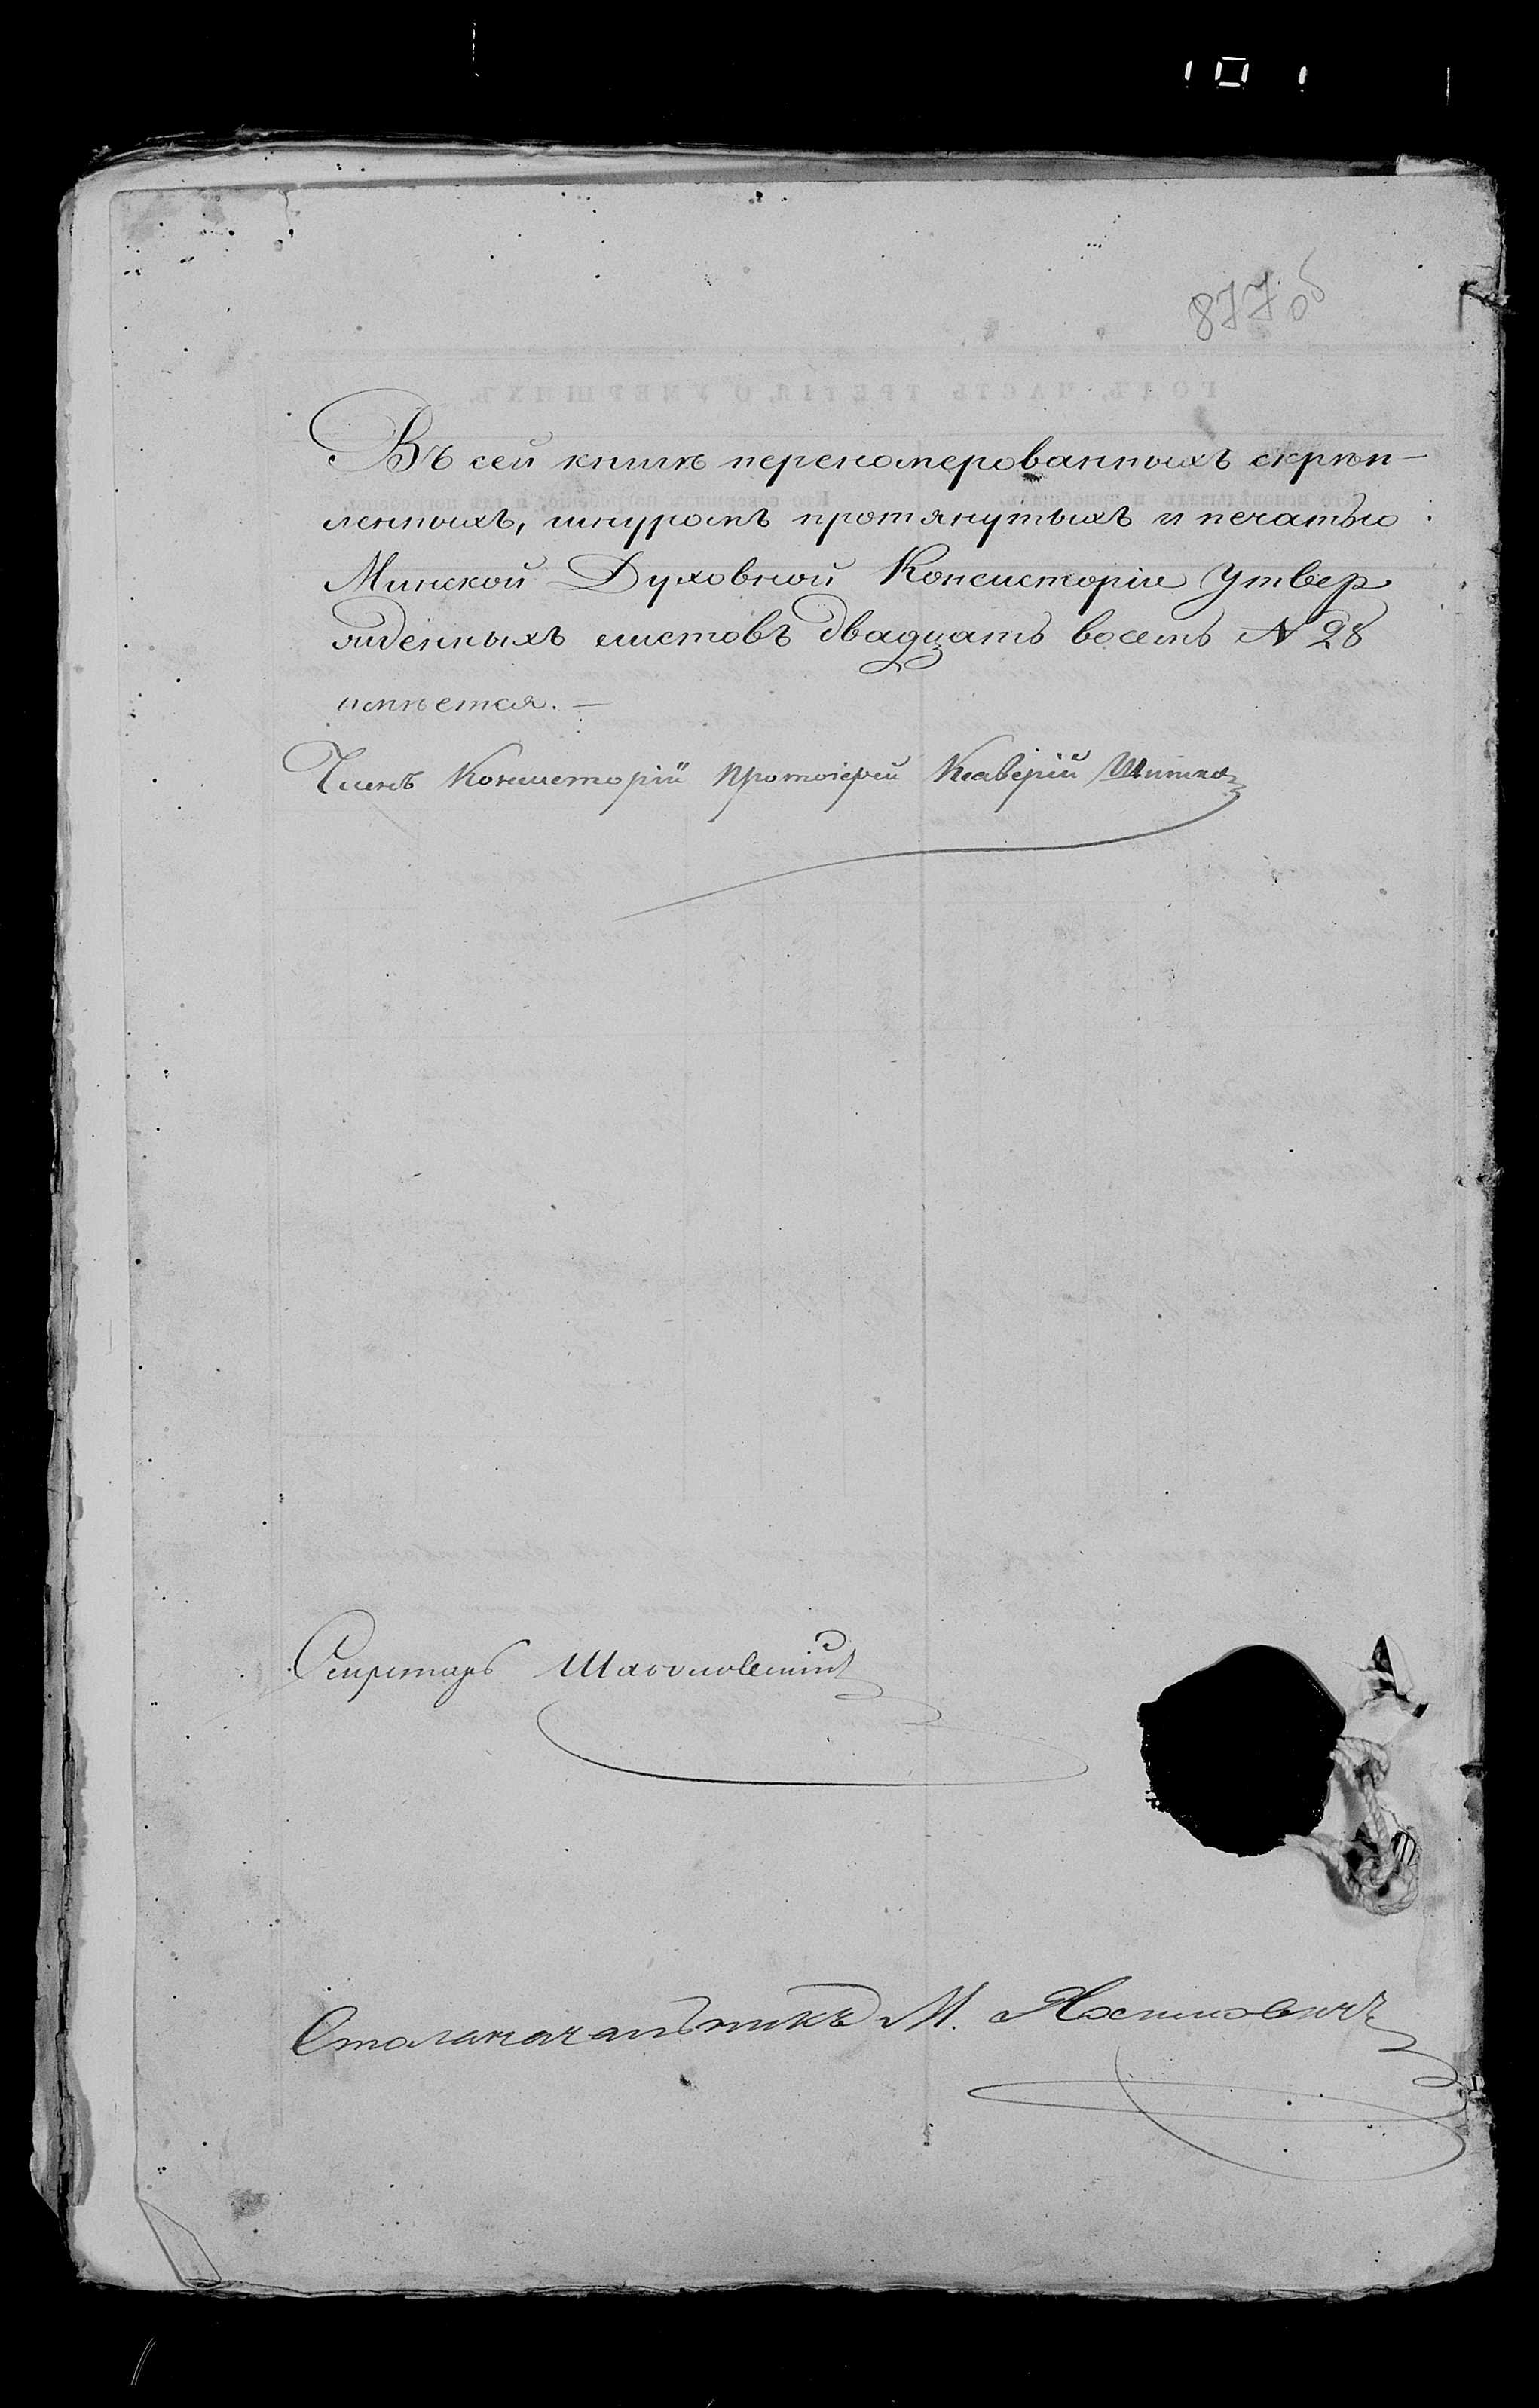 877 об
Въ сей книгѣ переномерованныхъ скрѣп-
ленныхъ, шнуромъ протянутыхъ и печатью
Минской Духовной Консисторіи Утвер
жденныхъ листовъ двадцать восемь № 28
имѣется. —
Членъ Консисторіи Протоіерей Ксаверій
Секретарь
Столоначальникъ М.